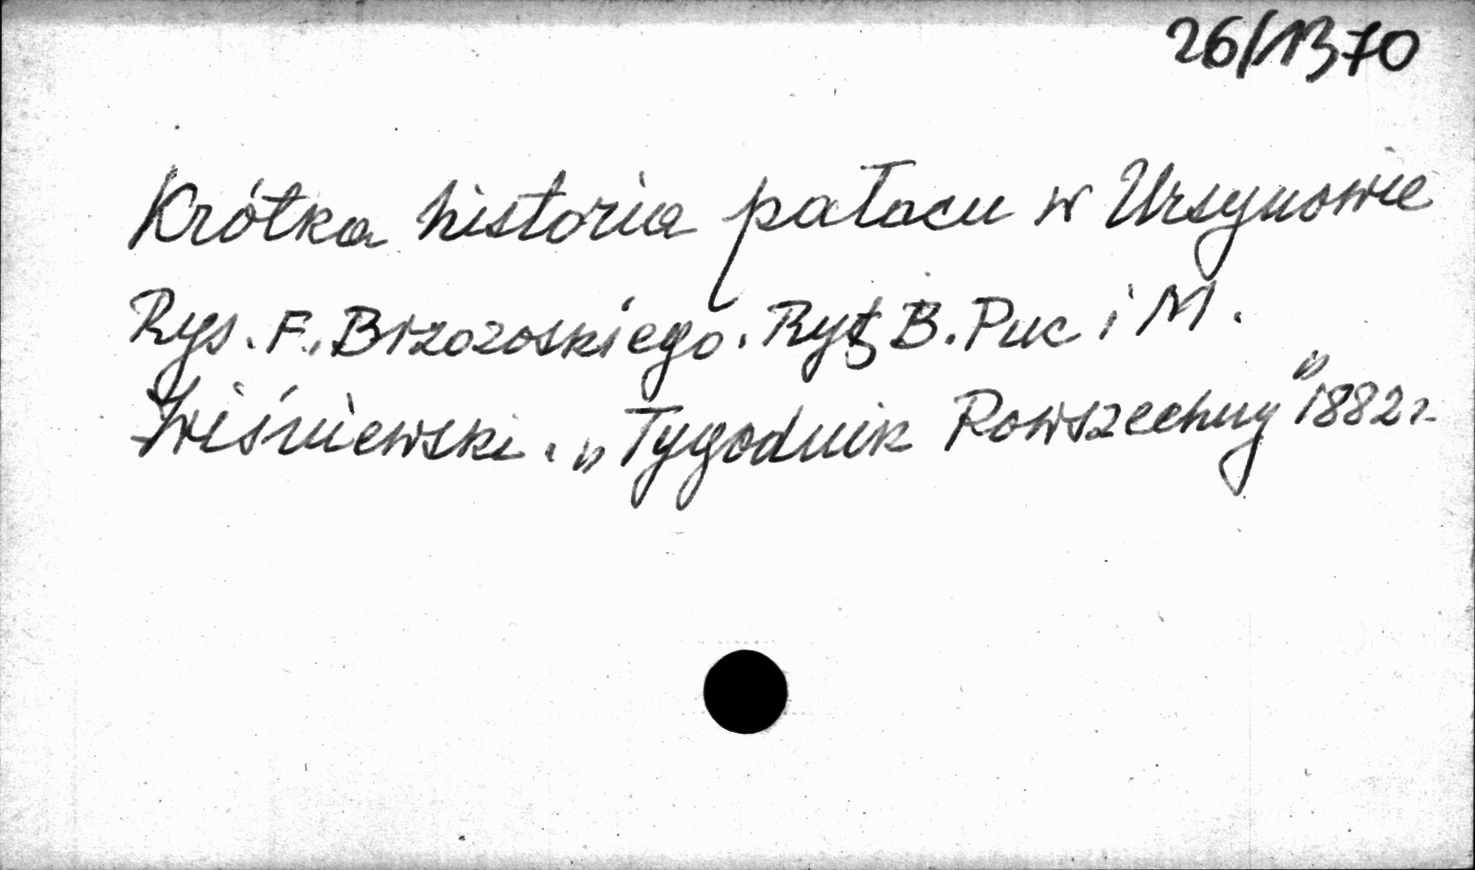 26/1370
Krótka historia pałacu w Ursynowie
Rys. F. Brzozoskiego. Ryt B. Puc i M.
Wiśniewski. „Tygodnik Powszechny" 1882 r.